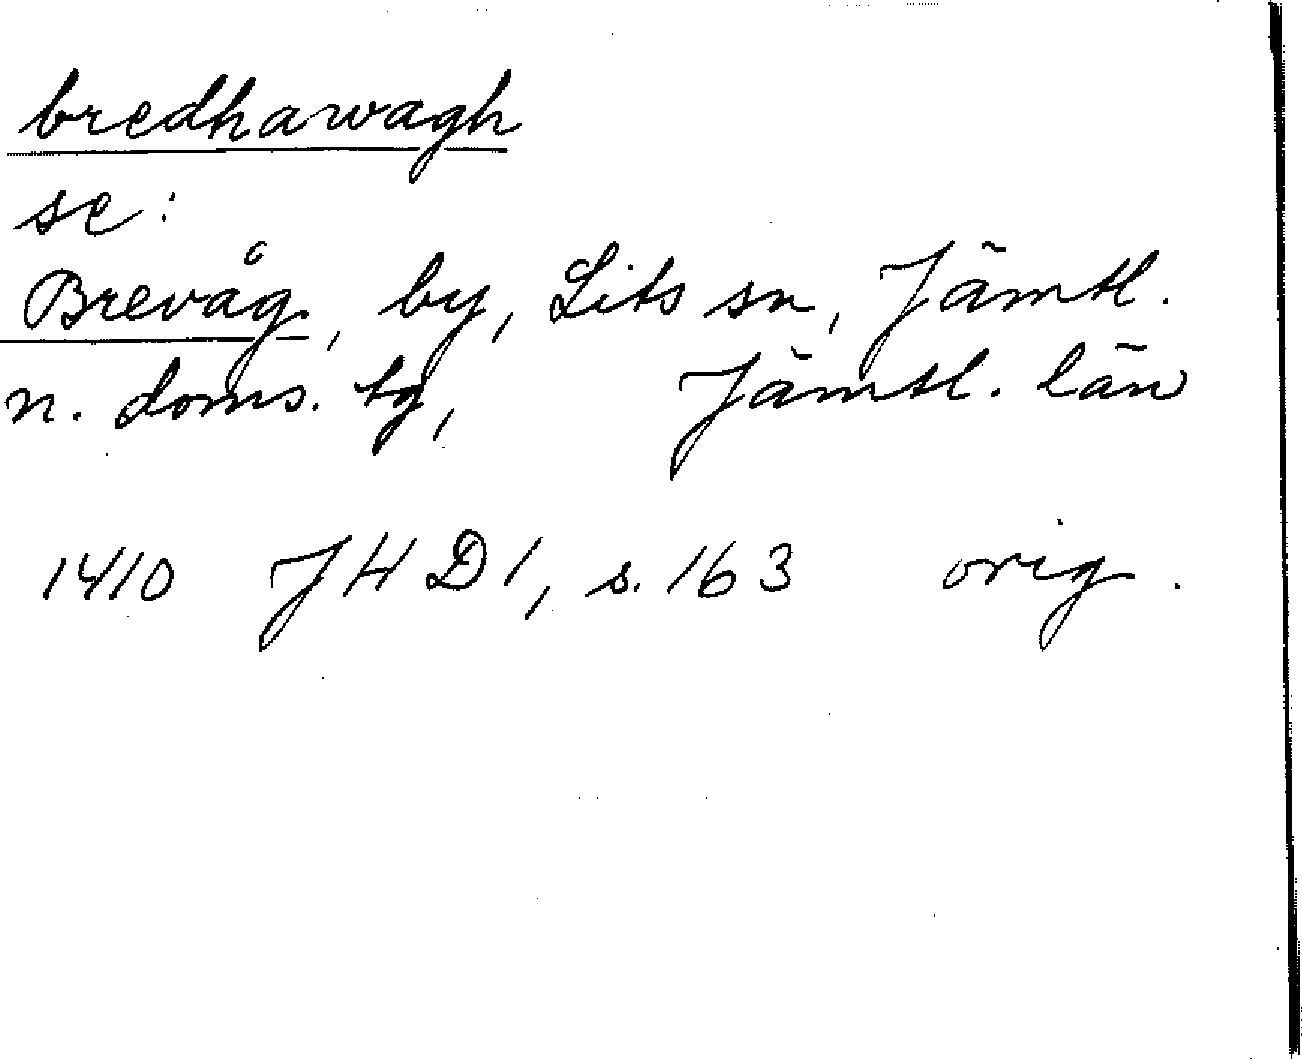 bredhawagh
se:
Brevåg, by, Lits sn, Jämtl.
n. doms. tg, Jämtl. län
1410 JHD 1, s. 163 orig.